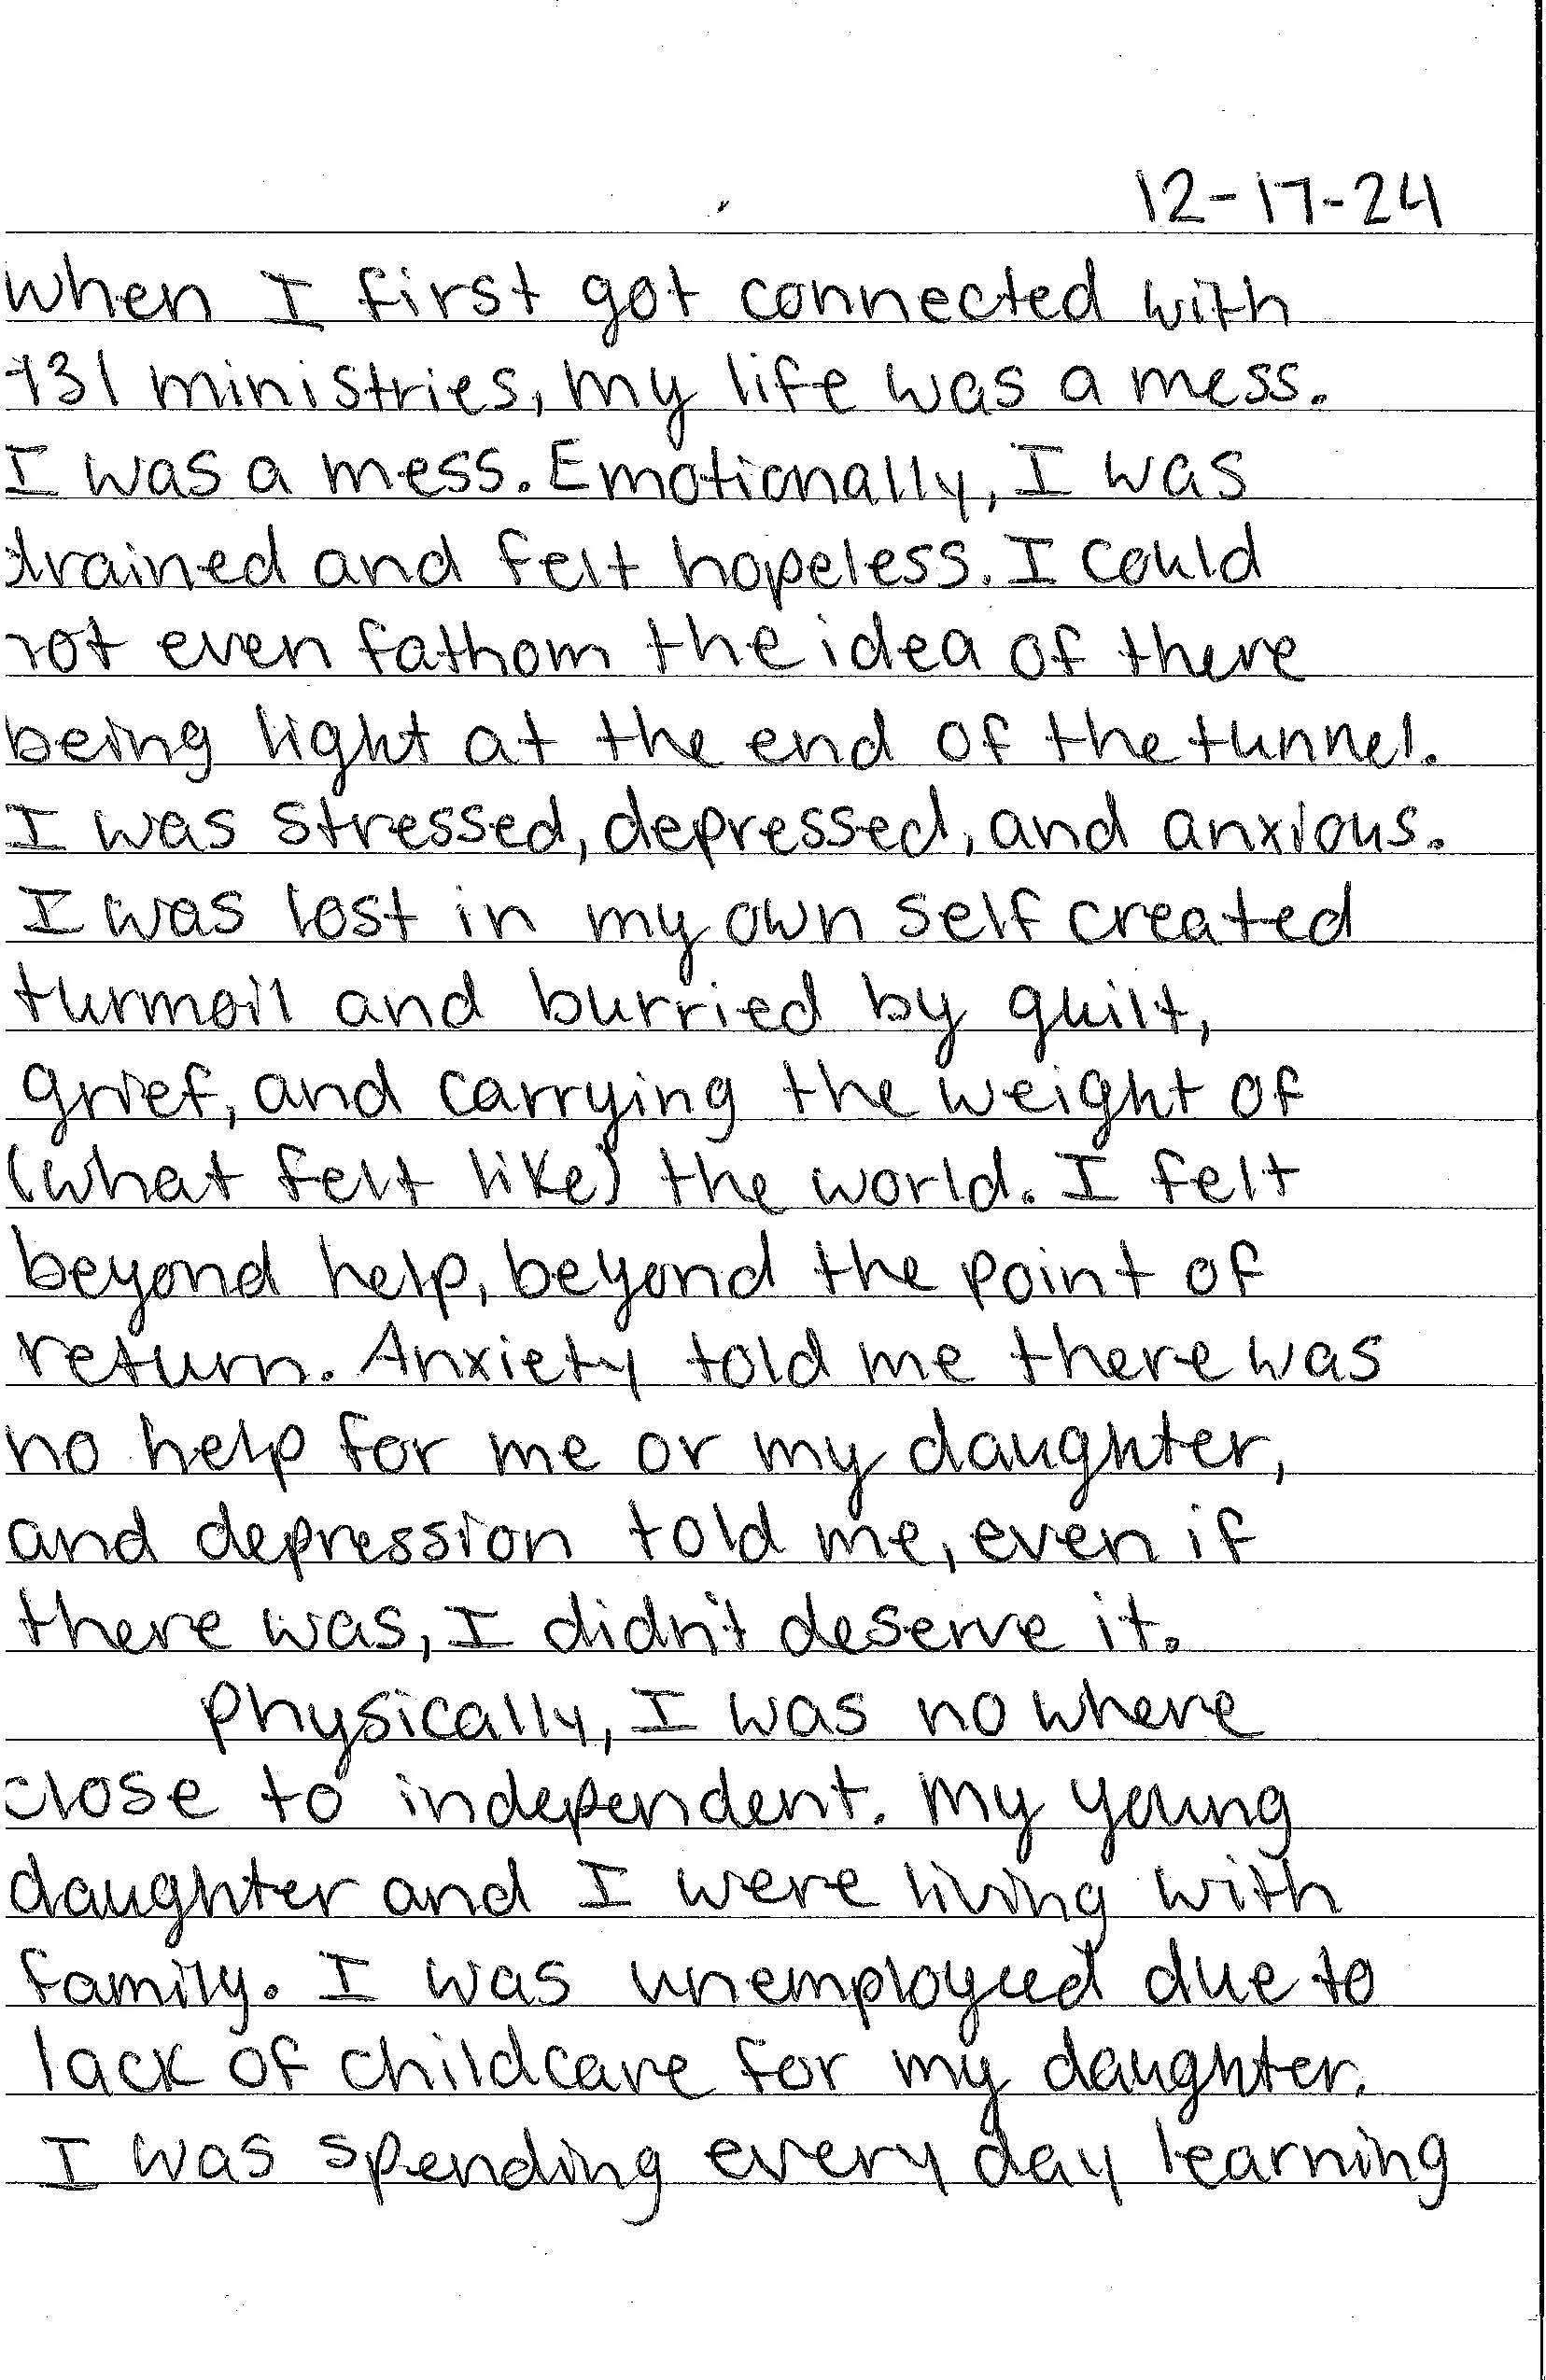 12-17-24
When I first got connected with
131 ministries, my life was a mess.
I was a mess. Emotionally, I was
drained and felt hopeless. I could
not even fathom the idea of there
being light at the end of the tunnel.
I was stressed, depressed, and anxious.
I was lost in my own self created
turmoil and burried by guilt,
grief, and carrying the weight of
(what felt like) the world. I felt
beyond help, beyond the point of
return. Anxiety told me there was
no help for me or my daughter,
and depression told me, even if
there was, I didn't deserve it.
Physically, I was no where
close to independent. My young
daughter and I were living with
family. I was unemployed due to
lack of childcare for my daughter.
I was spending every day learning